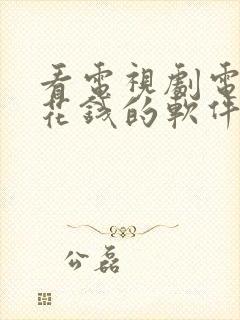 看電視劇電
花錢的軟件
公磊